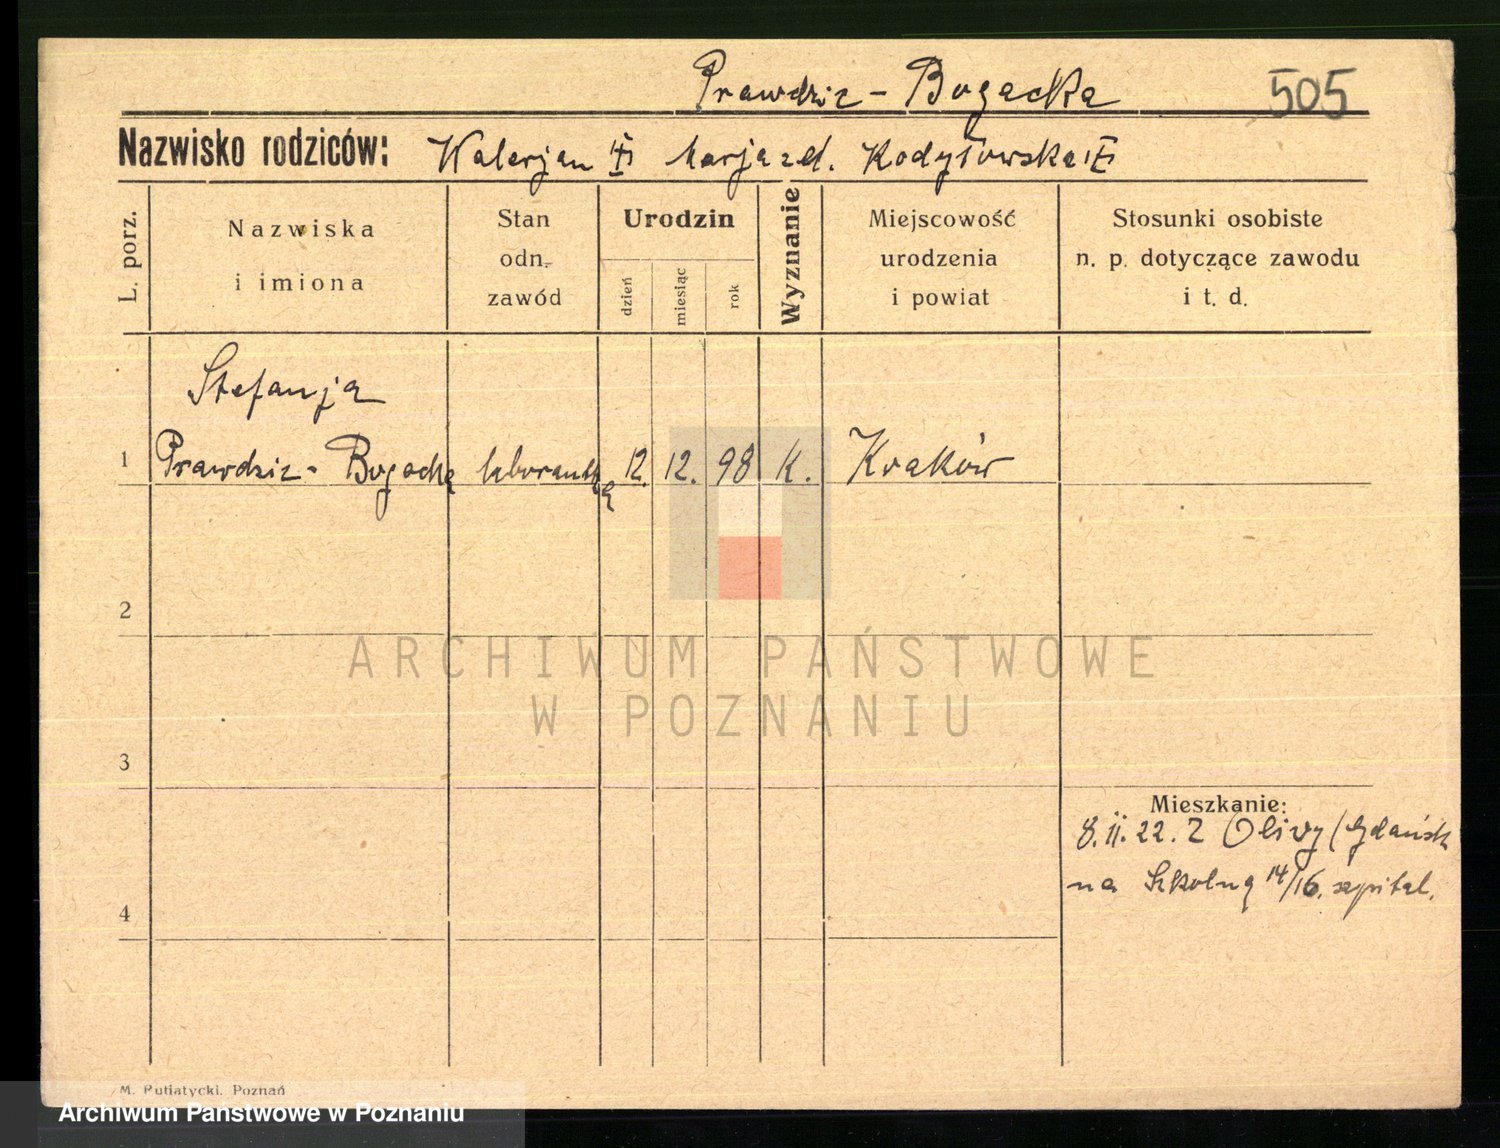 Prawdzic - Bogacka 505
Nazwisko rodziców: Walerjan Marja zd. Kodyłowska
L. porz.
Nazwiska
i imiona
Stan
odn.
zawód
Urodzin
dzień
miesiąc
rok
Wyznanie
Miejscowość
urodzenia
i powiat
Stosunki osobiste
n. p. dotyczące zawodu
i t. d.
Stefanja
1 Prawdzic - Bogacka laborantka 12. 12. 98 K. Kraków
2
ARCHIWUM PAŃSTWOWE
W POZNANIU
3
Mieszkanie:
8.II.22. z Oliwy (Gdańsk
na Szkolną 14/16. szpital.
4
M. Putiatycki. Poznań
Archiwum Państwowe w Poznaniu